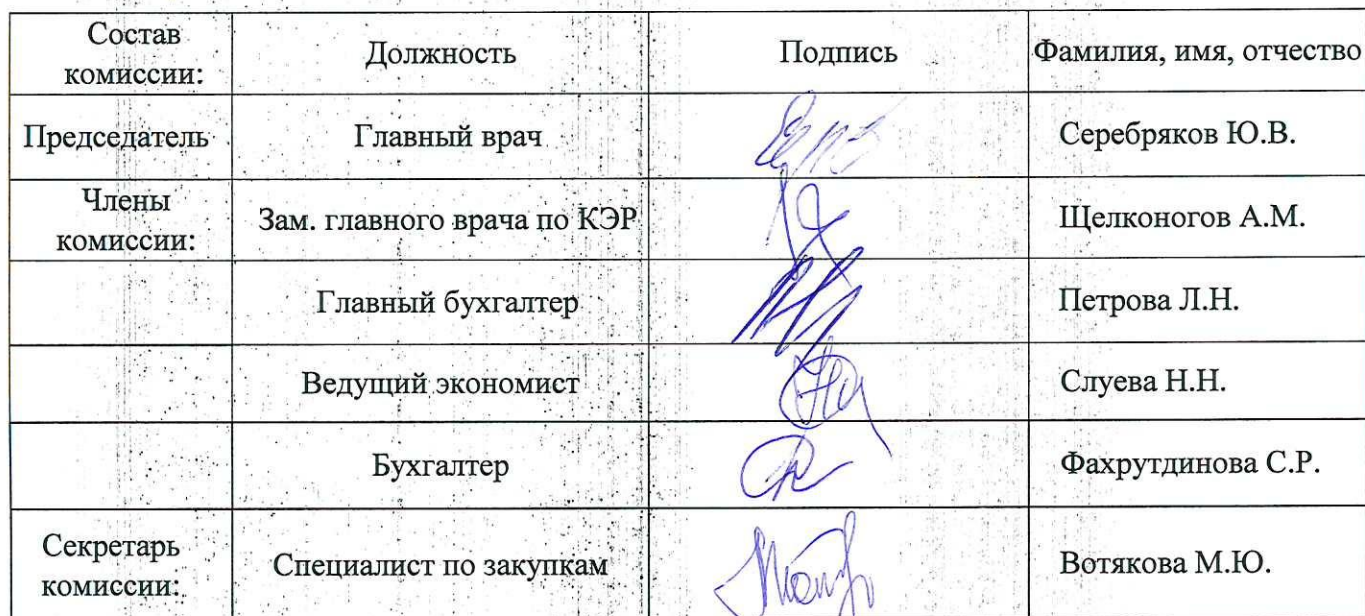 Состав комиссии: Должность Подпись Фамилия, имя, отчество
Председатель Главный врач Серебряков Ю.В.
Члены комиссии: Зам. главного врача по КЭР Щелконогов А.М.
Главный бухгалтер Петрова Л.Н.
Ведущий экономист Слуева Н.Н.
Бухгалтер Фахрутдинова С.Р.
Секретарь комиссии: Специалист по закупкам Вотякова М.Ю.